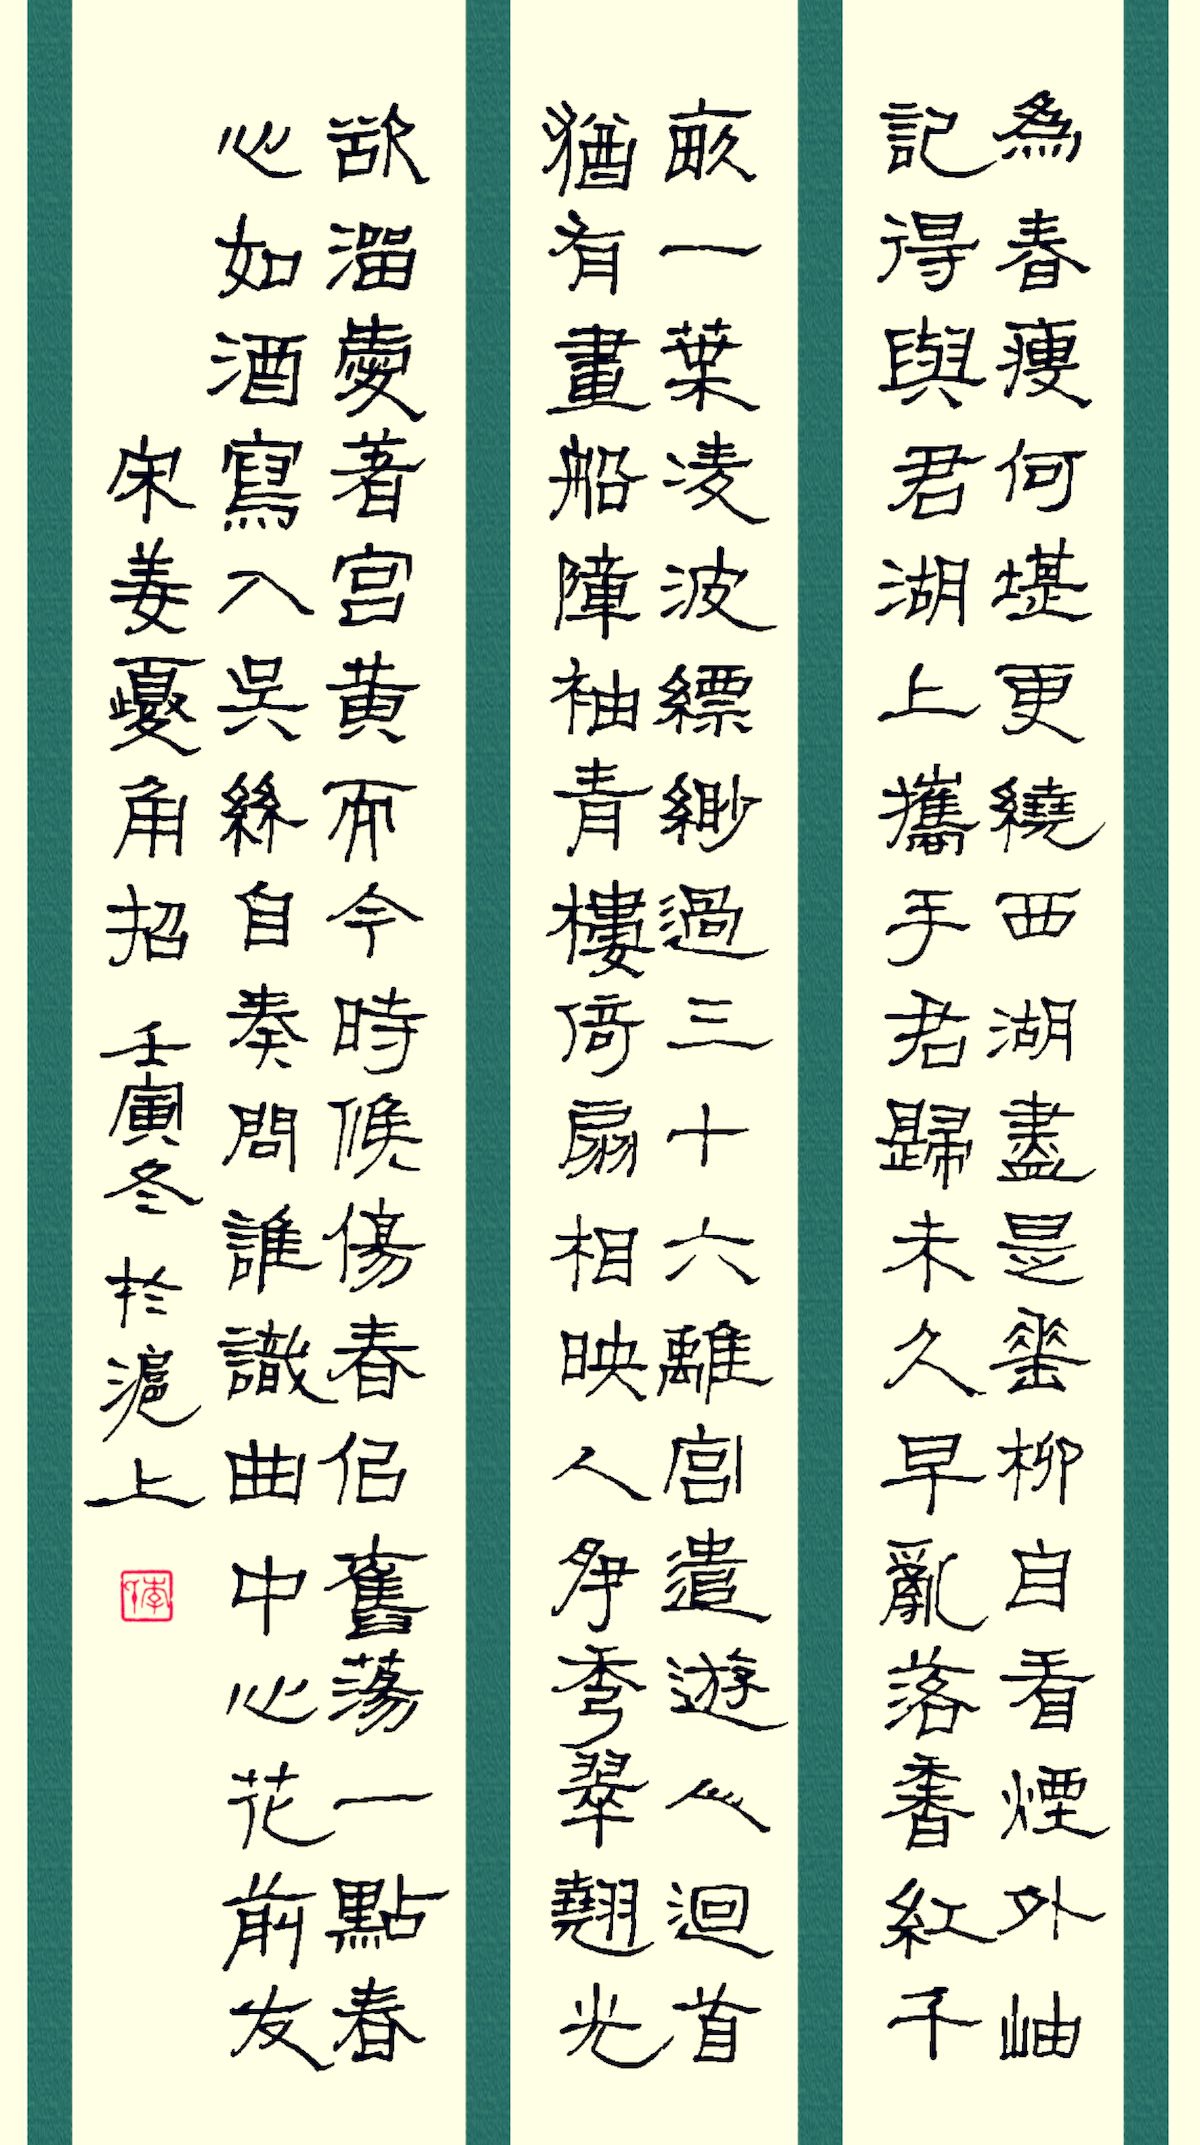 為春瘦何堪更繞西湖盡是垂柳自看煙外岫
記得與君湖上攜手君歸未久早亂落香紅千
畝一葉凌波縹緲過三十六離宮遣遊人迴首
猶有畫船障袖青樓倚扇相映人爭秀翠翹光
欲溜愛著宮黃而今時候傷春似舊蕩一點春
心如酒寫入吳絲自奏問誰識曲中心花前友
宋姜夔角招 壬寅冬 於滬上